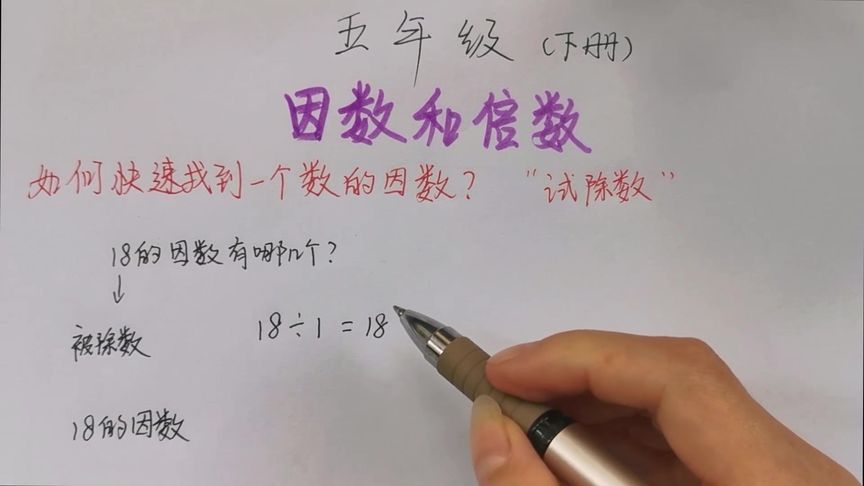 五年级(下册)
因数和倍数
如何快速找到一个数的因数？ “试除数”
18的因数有哪几个？
↓
被除数 18÷1=18
18的因数